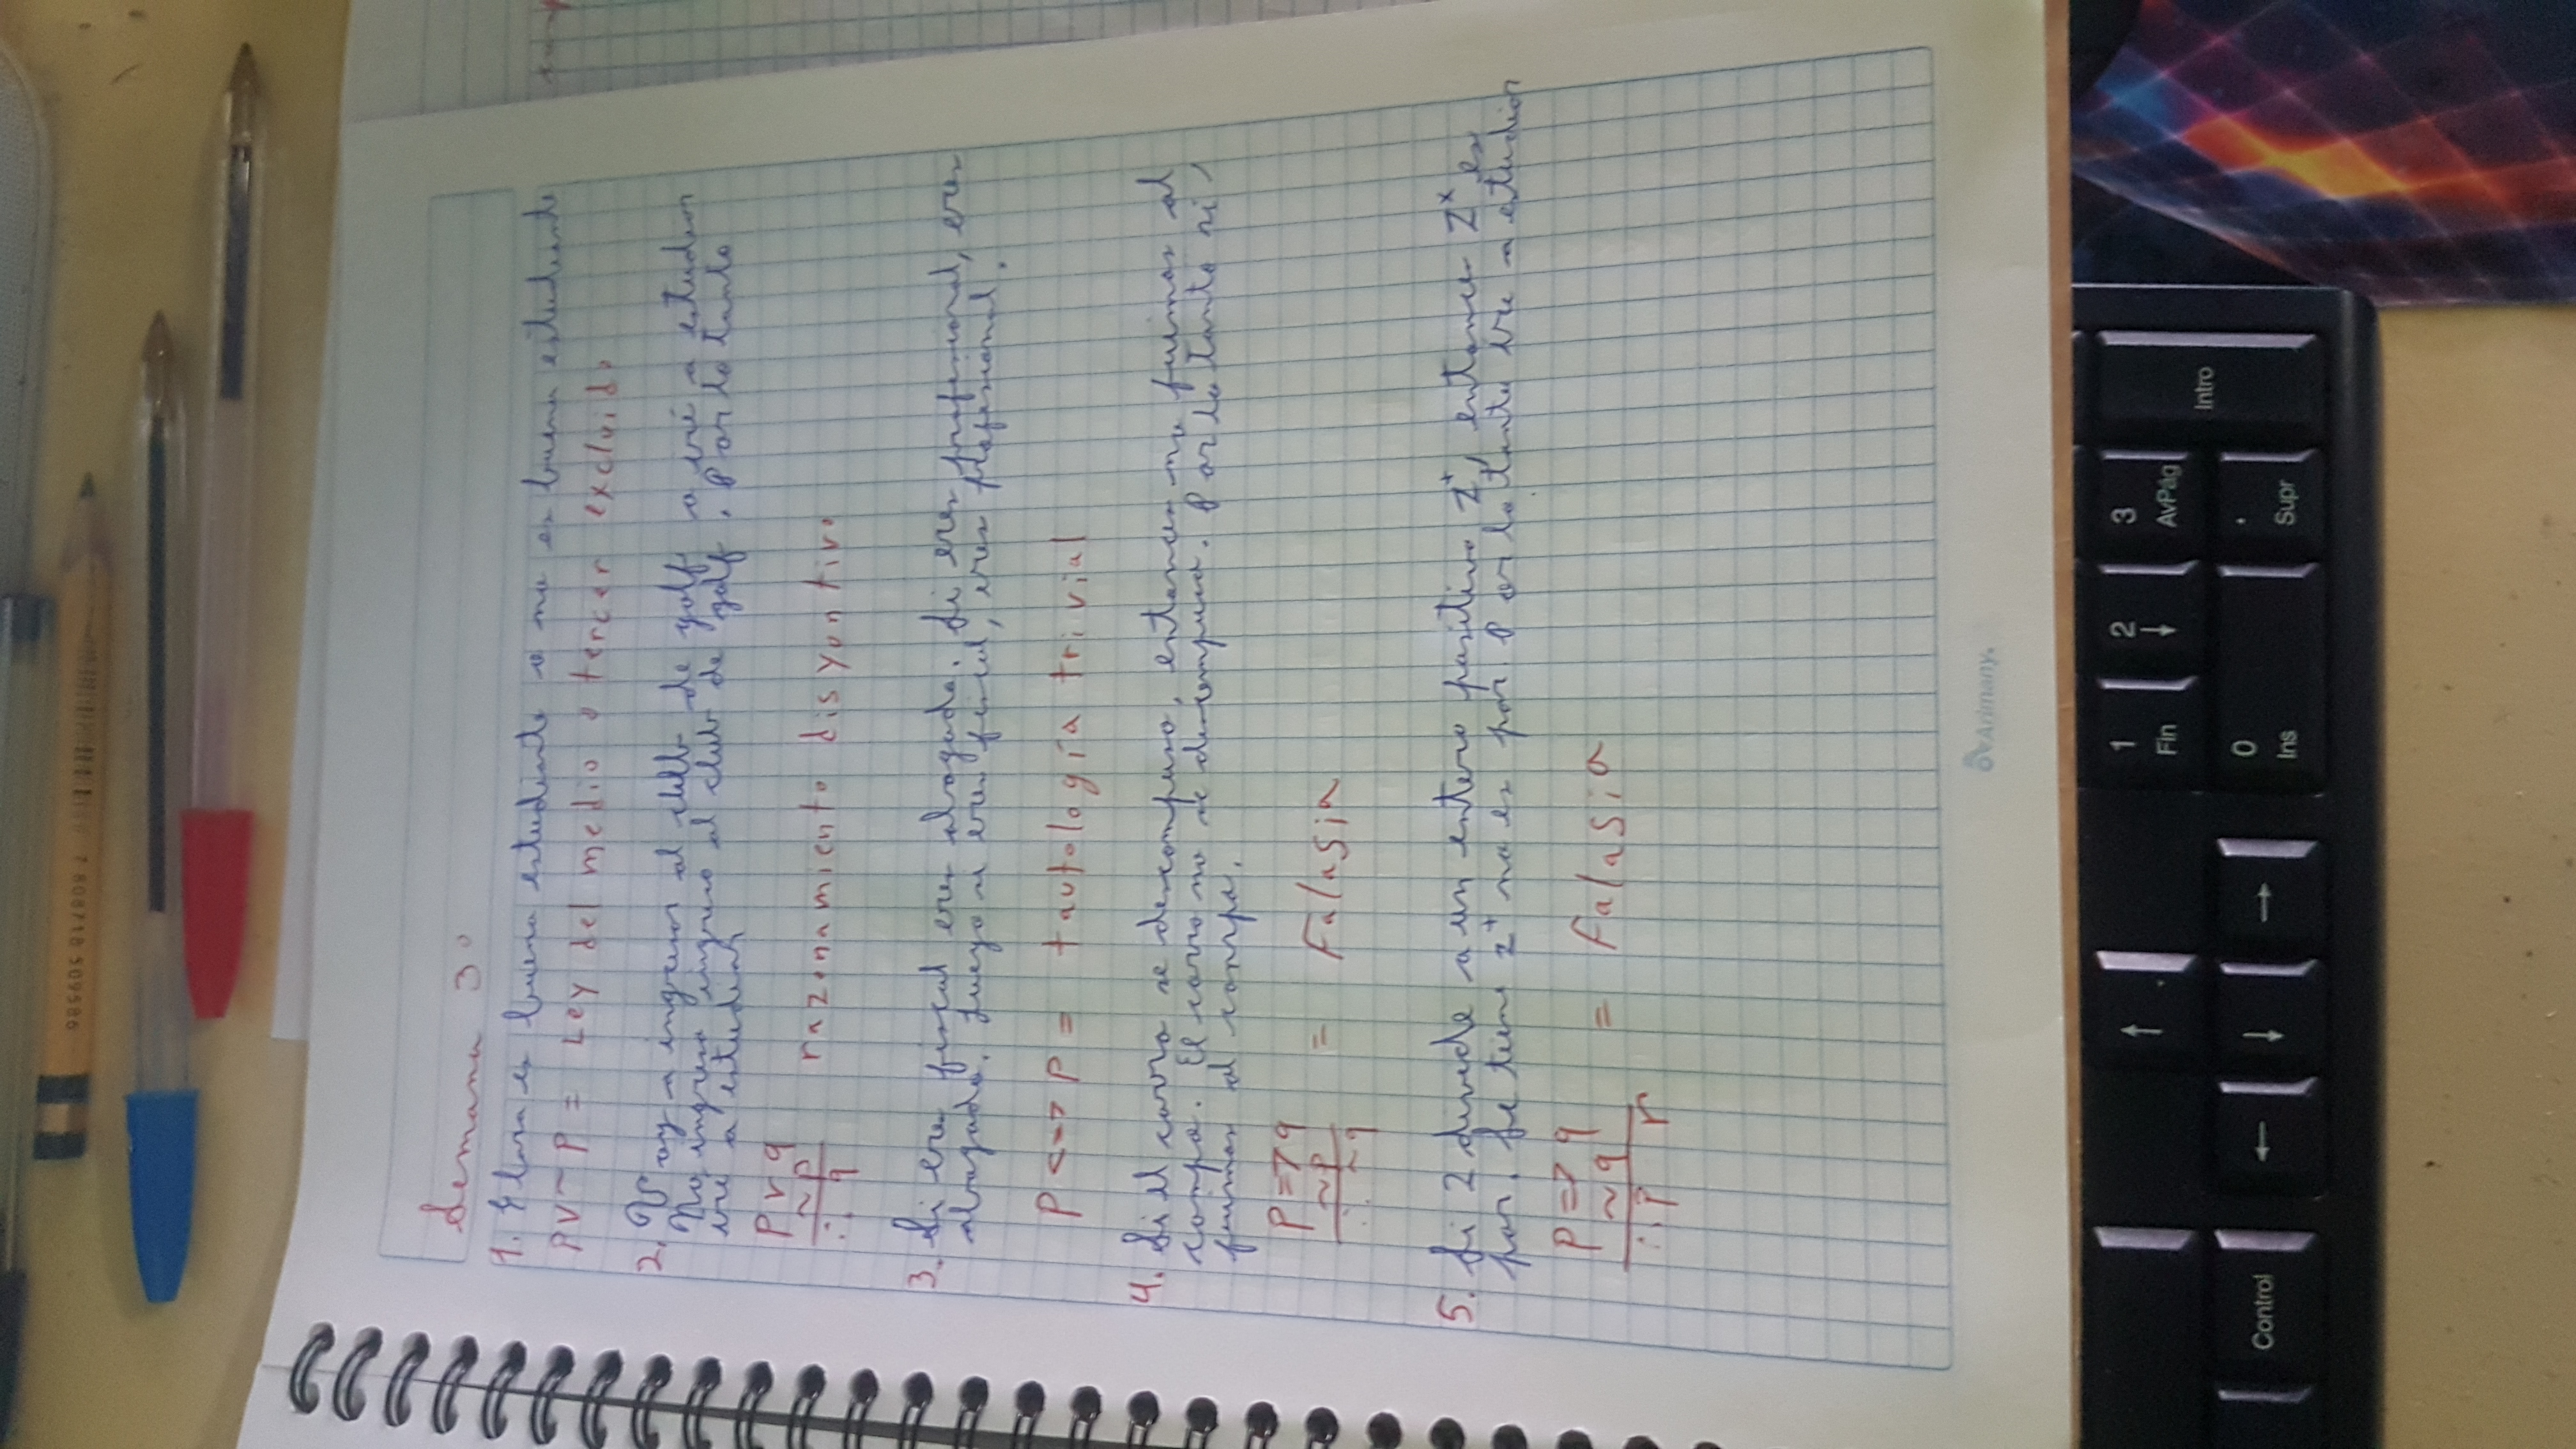 Semana 3.
1. Elara es buena estudiante o no es buena estudiante
PV~P = Ley del medio o tercer excluido
2. Voy a ingresar al club de golf o iré a estudiar
No ingreso ingreso al club de golf. Por lo tanto
iré a estudiar.
P v q
~P
∴ q
razonamiento disyuntivo
3. Si eres fiscal eres abogado. Si eres profesional, eres
abogado. Luego si eres fiscal, eres profesional.
P <=> P = tautología trivial
4. Si el carro se descompuso, entonces no fuimos al
campo. El carro no se descompuso. Por lo tanto si,
fuimos al campo.
P=>q
~P
∴ ~q
= Falasia
5. Si 2 divide a un entero positivo Z⁺ entonces Z⁺ es
par. Se tiene z⁺ no es par. Por lo tanto ire a estudiar
P=>q
~q
∴ P r
= falasia
Arimany.
7 808718 509586
Intro
3
AvPág
.
Supr
2
↓
1
Fin
0
Ins
↑
→
↓
←
Control